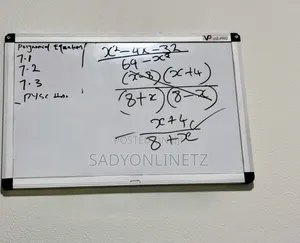 Polynomial Equation
7.1
7.2
7.3
x² - 4x - 32
64 - x²
(x-8)(x+4)
(8+x)(8-x)
- x+4
8+x
POSTED BY
SADYONLINETZ